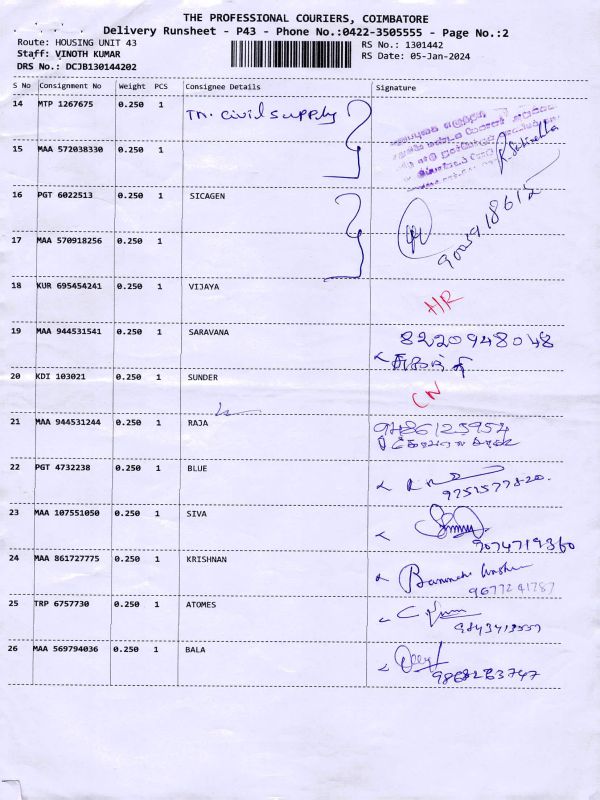 THE PROFESSIONAL COURIERS, COIMBATORE
Delivery Runsheet - P43 - Phone No.:0422-3505555 - Page No.:2
Route: HOUSING UNIT 43 RS No.: 1301442
Staff: VINOTH KUMAR RS Date: 05-Jan-2024
DRS No.: DCJB130144202
S No Consignment No Weight PCS Consignee Details Signature
14 MTP 1267675 0.250 1 TN. civil supply
15 MAA 572038330 0.250 1
16 PGT 6022513 0.250 1 SICAGEN
9003918612
17 MAA 570918256 0.250 1
18 KUR 695454241 0.250 1 VIJAYA HR
19 MAA 944531541 0.250 1 SARAVANA 8220948048
20 KDI 103021 0.250 1 SUNDER CN
21 MAA 944531244 0.250 1 RAJA 9486125954
22 PGT 4732238 0.250 1 BLUE
9751577820.
23 MAA 107551050 0.250 1 SIVA
9074719360
24 MAA 861727775 0.250 1 KRISHNAN
9677241787
25 TRP 6757730 0.250 1 ATOMES
26 MAA 569794036 0.250 1 BALA